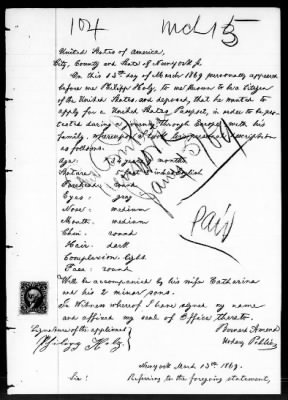 104 Mch 15
United States of America,
City, County and State of Newyork ss.
On this 13th day of March 1869 personally appeared
before me Philipp Holz, to me known to be a Citizen
of the United States, and deposed, that he wanted to
apply for a United States Passport, in order to be
during a journey through Europe with his
family, whereupon I took his personal description
as follows:
Age: years months
Stature: feet inches English
Forehead: round
Eyes: grey
Nose: medium
Mouth: medium
Chin: round
Hair: dark
Complexion: light
Face: round
paid
Will be accompanied by his wife Catharina
and his 2 minor sons.
In Witness whereof I have signed my name
and affixed my seal of Office thereto.
Signature of the applicant
Bernard Amend
Notary Public
Newyork March 13th 1869.
Sir! Referring to the foregoing statement,